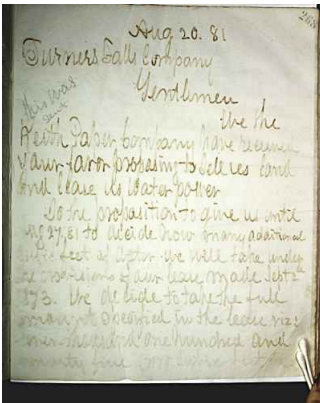 268
Aug 20. 81
Turners Falls Company
Gentlemen
this was
sent
We the
Keith Paper Company have received
your favor proposing to sell us land
and lease us water power
To the proposition to give us until
Aug 27, 81 to decide how many additional
feet of water we will take under
the provisions of our lease made Sept
1873. We decide to take the full
amount specified in the lease viz:
thousand one hundred and
five